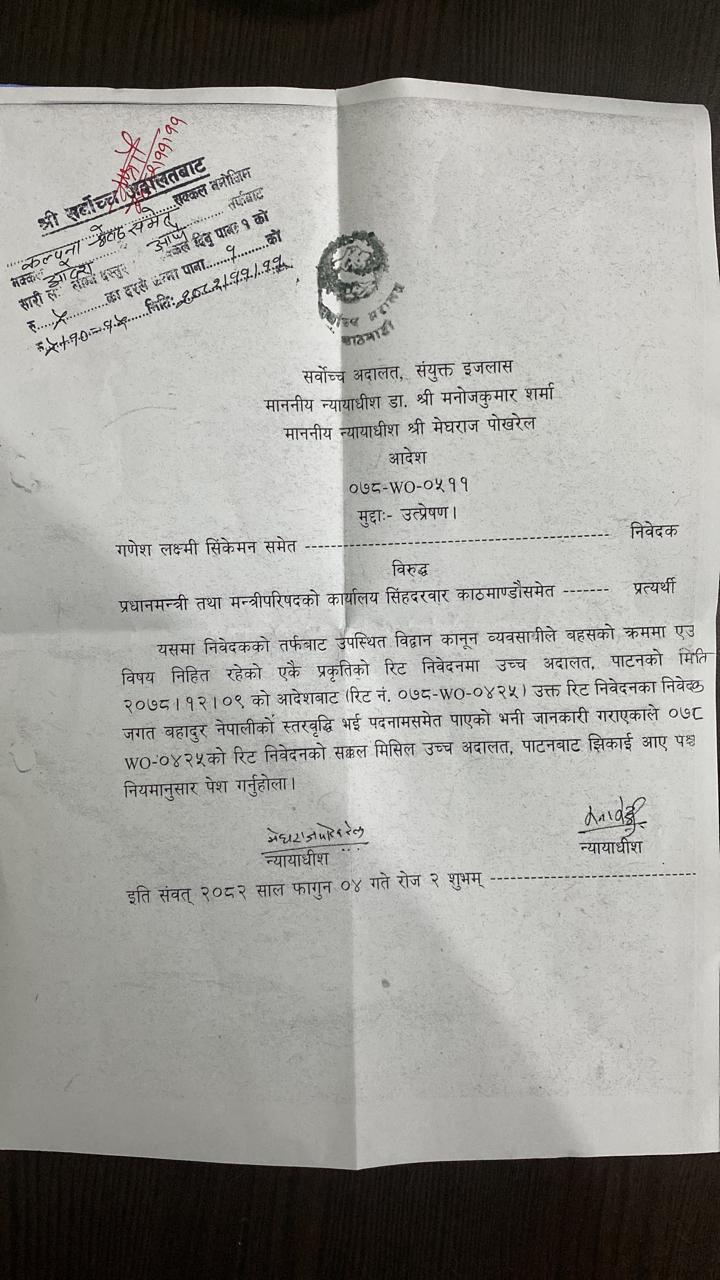 श्री सर्वोच्च अदालतबाट
कल्पना श्रेष्ठ समेत
सक्कल बमोजिम
तर्फबाट
आदेश
सारी
नक्कल दिनु पाना १ को
रु. ५ का दरले जम्मा पाना १ को
मिति: २०८२।११।११
काठमाडौं
सर्वोच्च अदालत, संयुक्त इजलास
माननीय न्यायाधीश डा. श्री मनोजकुमार शर्मा
माननीय न्यायाधीश श्री मेघराज पोखरेल
आदेश
०७८-WO-०५११
मुद्दाः- उत्प्रेषण।
गणेश लक्ष्मी सिंकेमन समेत ---------------------------------------- निवेदक
विरुद्ध
प्रधानमन्त्री तथा मन्त्रीपरिषदको कार्यालय सिंहदरवार काठमाण्डौसमेत ------- प्रत्यर्थी
यसमा निवेदकको तर्फबाट उपस्थित विद्वान कानून व्यवसायीले बहसको क्रममा एउ
विषय निहित रहेको एकै प्रकृतिको रिट निवेदनमा उच्च अदालत, पाटनको मिति
२०७८।१२।०९ को आदेशबाट (रिट नं. ०७८-WO-०४२५) उक्त रिट निवेदनका निवेदक
जगत बहादुर नेपालीको स्तरवृद्धि भई पदनामसमेत पाएको भनी जानकारी गराएकाले ०७८
WO-०४२५को रिट निवेदनको सक्कल मिसिल उच्च अदालत, पाटनबाट झिकाई आए पश्च
नियमानुसार पेश गर्नुहोला।
मेघराज पोखरेल
न्यायाधीश न्यायाधीश
इति संवत् २०८२ साल फागुन ०४ गते रोज २ शुभम् ---------------------------